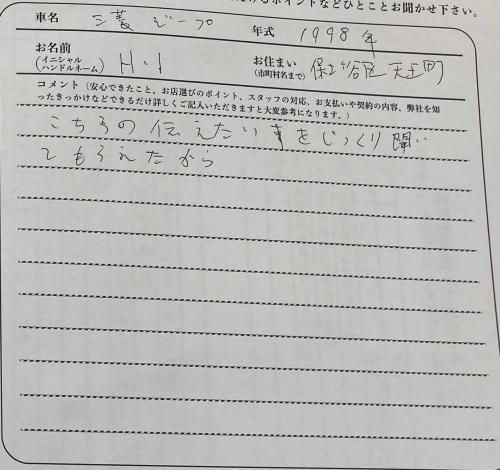 けるポイントなどひとことお聞かせ下さい。
車名 三菱 ジープ 年式 1998年
お名前 (イニシャル ハンドルネーム) H・I お住まい (市町村名まで) 保土ヶ谷区 天王町
コメント（安心できたこと、お店選びのポイント、スタッフの対応、お支払いや契約の内容、弊社を知
ったきっかけなどできるだけ詳しくご記入いただきますと大変参考になります。）
こちらの伝えたい事をじっくり聞い
てもらえたから